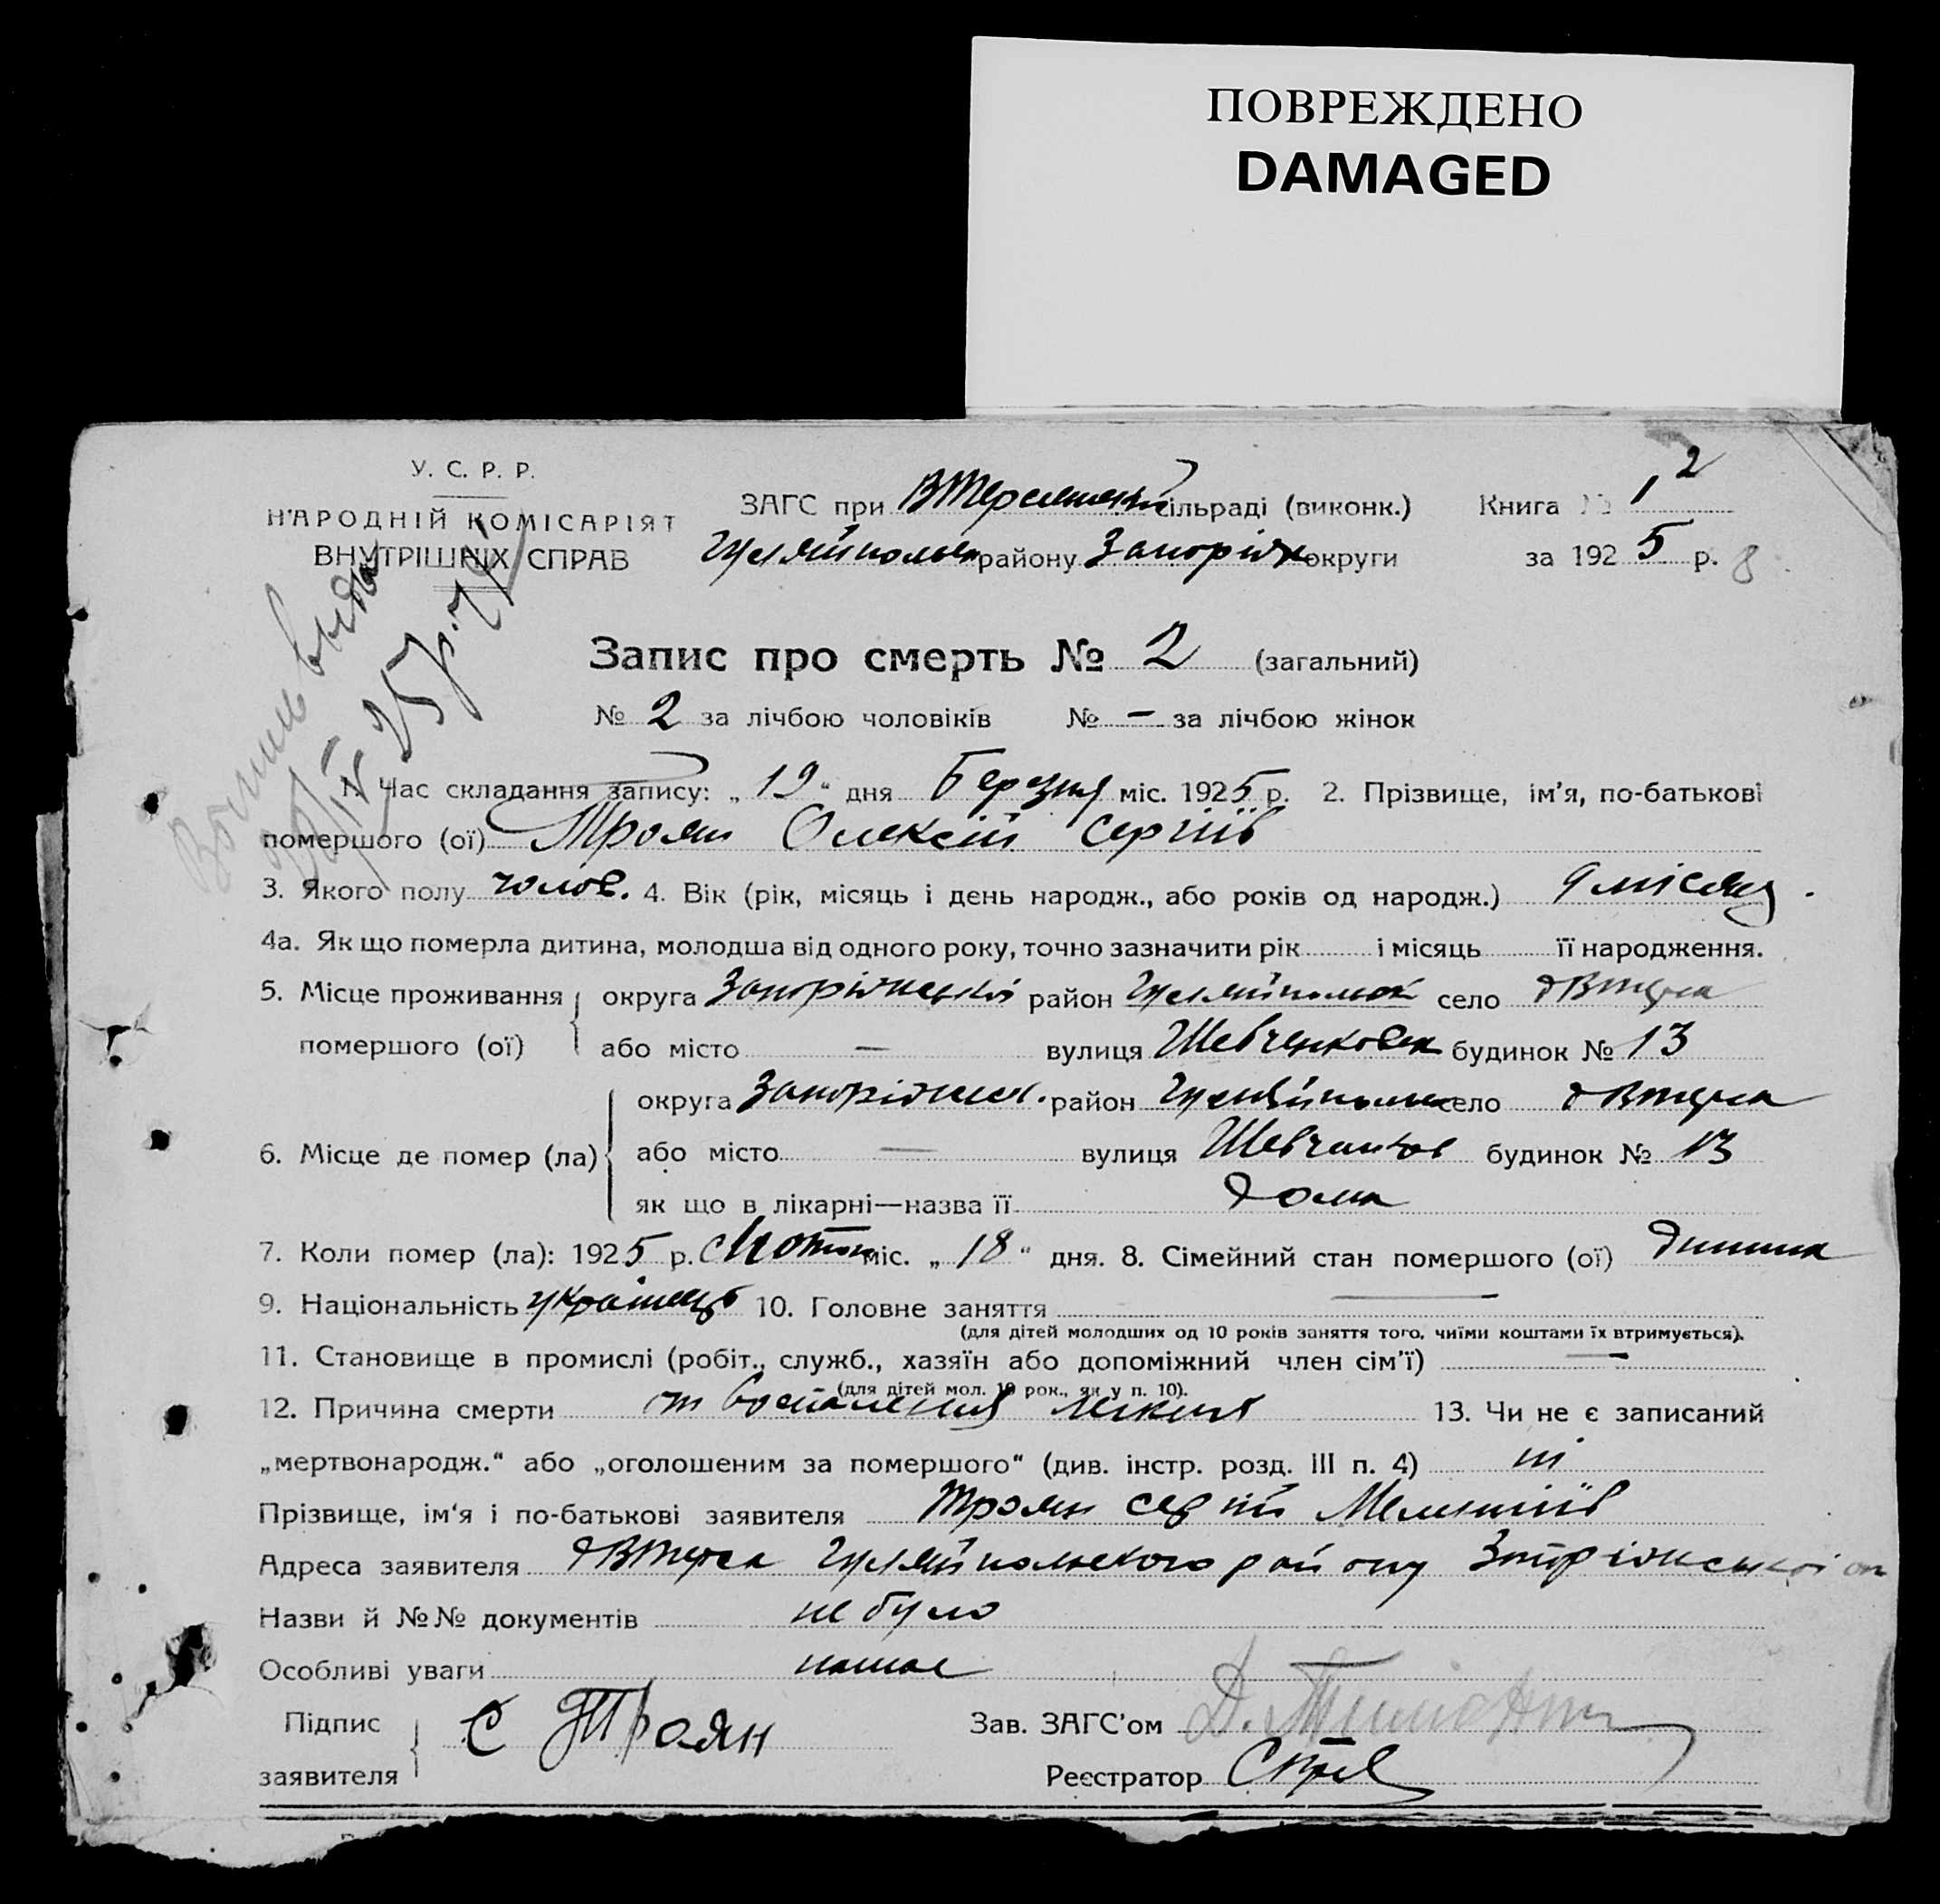 ПОВРЕЖДЕНО
DAMAGED
У. С. Р. Р.
НАРОДНІЙ КОМІСАРІЯТ
ВНУТРІШНІХ СПРАВ
ЗАГС при сільраді (виконк.)
району Запоріж округи
Книга № 1 2
за 1925 р. 8
Запис про смерть № 2 (загальний)
№ 2 за лічбою чоловіків № — за лічбою жінок
1. Час складання запису: „19“ дня Березня міс. 1925 р. 2. Прізвище, ім'я, по-батькові
помершого (ої) Троян Олексій Сергіїв
3. Якого полу чолов. 4. Вік (рік, місяць і день народж., або років од народж.) 9 місяц.
4а. Як що померла дитина, молодша від одного року, точно зазначити рік і місяць її народження.
5. Місце проживання помершого (ої)
округа Запоріжської район Гуляйпольск село
або місто — вулиця Шевченковск будинок № 13
6. Місце де помер (ла)
округа район село
або місто — вулиця Шевченков будинок № 13
як що в лікарні—назва її дома
7. Коли помер (ла): 1925 р. міс. „18“ дня. 8. Сімейний стан помершого (ої) дитина
9. Національність українець 10. Головне заняття —
(для дітей молодших од 10 років заняття того, чиїми коштами їх втримується).
11. Становище в промислі (робіт., служб., хазяїн або допоміжний член сім'ї) —
(для дітей мол. 10 рок., як у п. 10).
12. Причина смерти от воспаления легких 13. Чи не є записаний
„мертвонародж.“ або „оголошеним за помершого“ (див. інстр. розд. III п. 4) ні
Прізвище, ім'я і по-батькові заявителя Троян Сергій
Адреса заявителя Гуляйпольского району
Назви й №№ документів не було
Особливі уваги немає
Підпис заявителя С Троян
Зав. ЗАГС'ом
Реєстратор